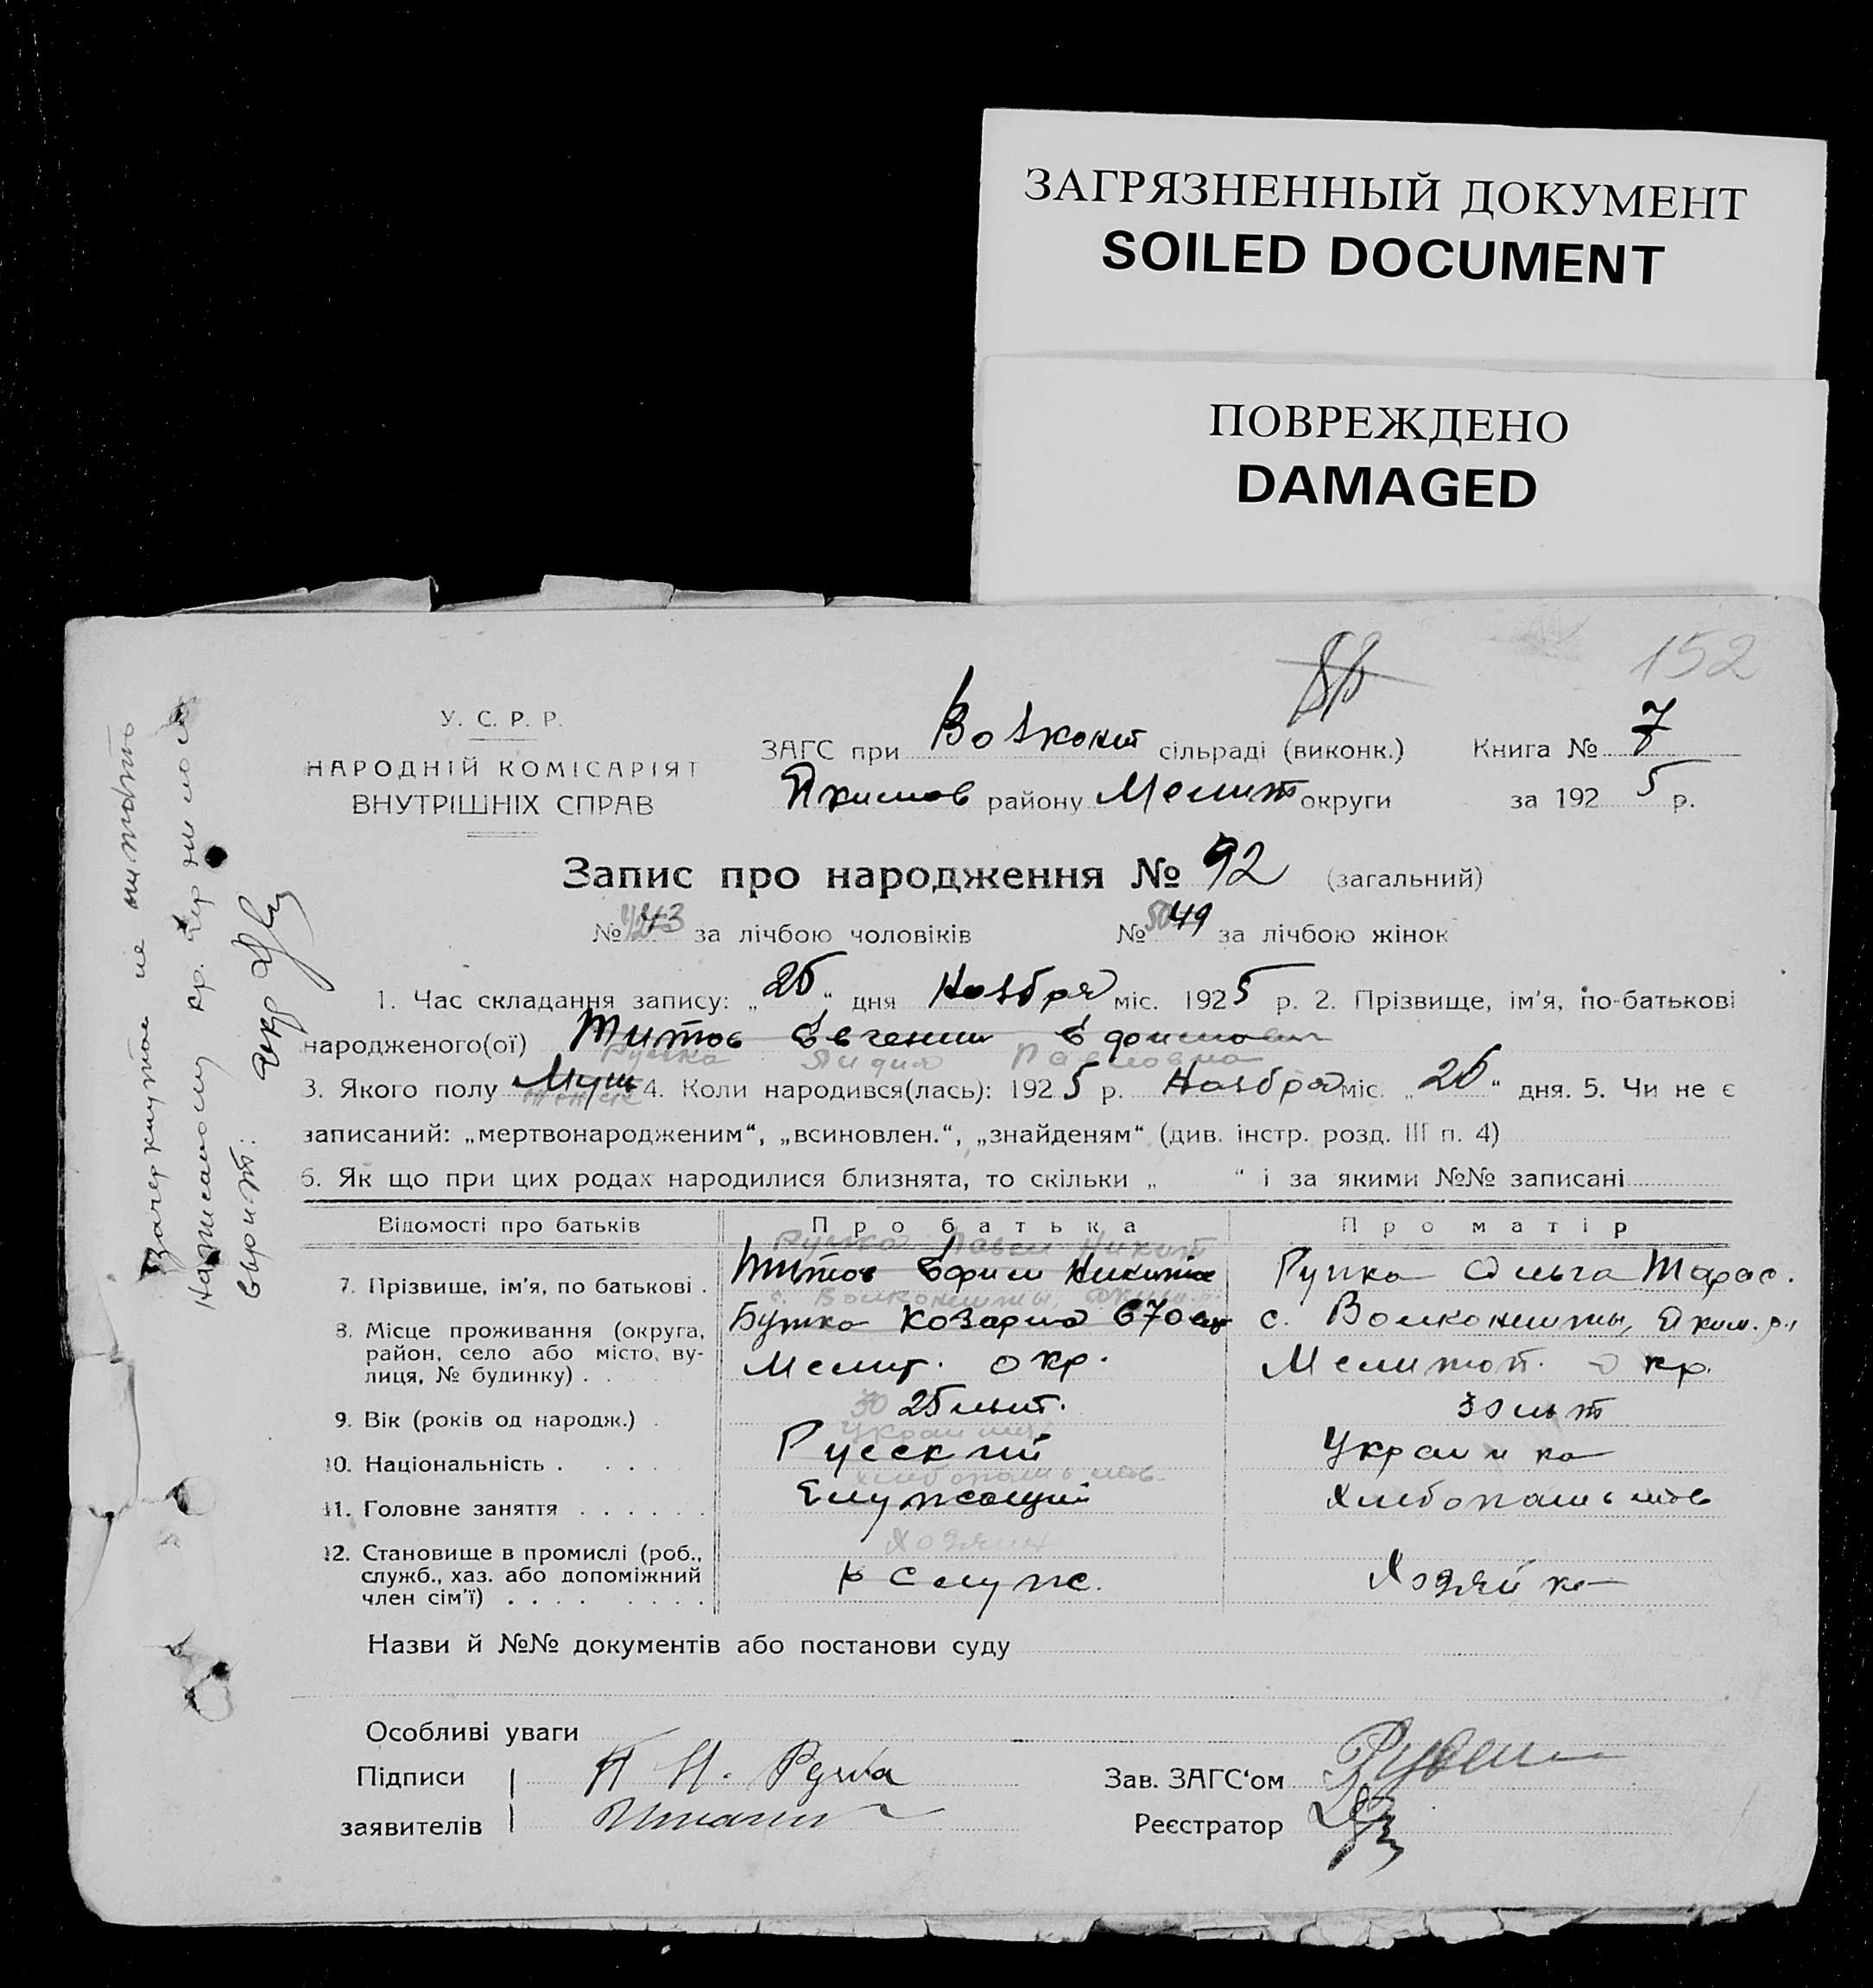 ЗАГРЯЗНЕННЫЙ ДОКУМЕНТ
SOILED DOCUMENT
ПОВРЕЖДЕНО
DAMAGED
152
У. С. Р. Р.
НАРОДНІЙ КОМІСАРІЯТ
ВНУТРІШНІХ СПРАВ
ЗАГС при Волконет сільраді (виконк.) Книга № 7
Якимов району Мелит округи за 1925 р.
Запис про народження № 92 (загальний)
№ 43 за лічбою чоловіків № 50 49 за лічбою жінок
1. Час складання запису: „26“ дня Ноября міс. 1925 р. 2. Прізвище, ім'я, по-батькові
народженого(ої) Титов Евгений Ефимович
Ручка Лидия Павловна
3. Якого полу Муж 4. Коли народився(лась): 1925 р. Ноября міс. „26“ дня. 5. Чи не є
женс
записаний: „мертвонародженим“, „всиновлен.“, „знайденям“ (див. інстр. розд. III п. 4)
6. Як що при цих родах народилися близнята, то скільки „ “ і за якими №№ записані
Відомості про батьків Про батька Про матір
Ручка Павел Никит
7. Прізвище, ім'я, по батькові . Титов Ефим Никита Ручка Ольга Тарас.
8. Місце проживання (округа, район, село або місто, вулиця, № будинку) . .
с. Волконешты, Яким. р.
Мелит. окр.
с. Волконешты, Яким. р.
Мелитоп. окр.
9. Вік (років од народж.) . 30 25 лет. 30 лет
Украинец
10. Національність . . . . . Русский Украинка
хлебопашество
11. Головне заняття . . . . . . Служащий хлебопашество
Хозяин
12. Становище в промислі (роб., служб., хаз. або допоміжний член сім'ї) . . . . . . . .
служ. Хозяйка
Назви й №№ документів або постанови суду
Особливі уваги
Підписи П Н. Ручка Зав. ЗАГС'ом
заявителів Реєстратор
Зачеркнутое не читать
Написанному кр. чернилом
верить: